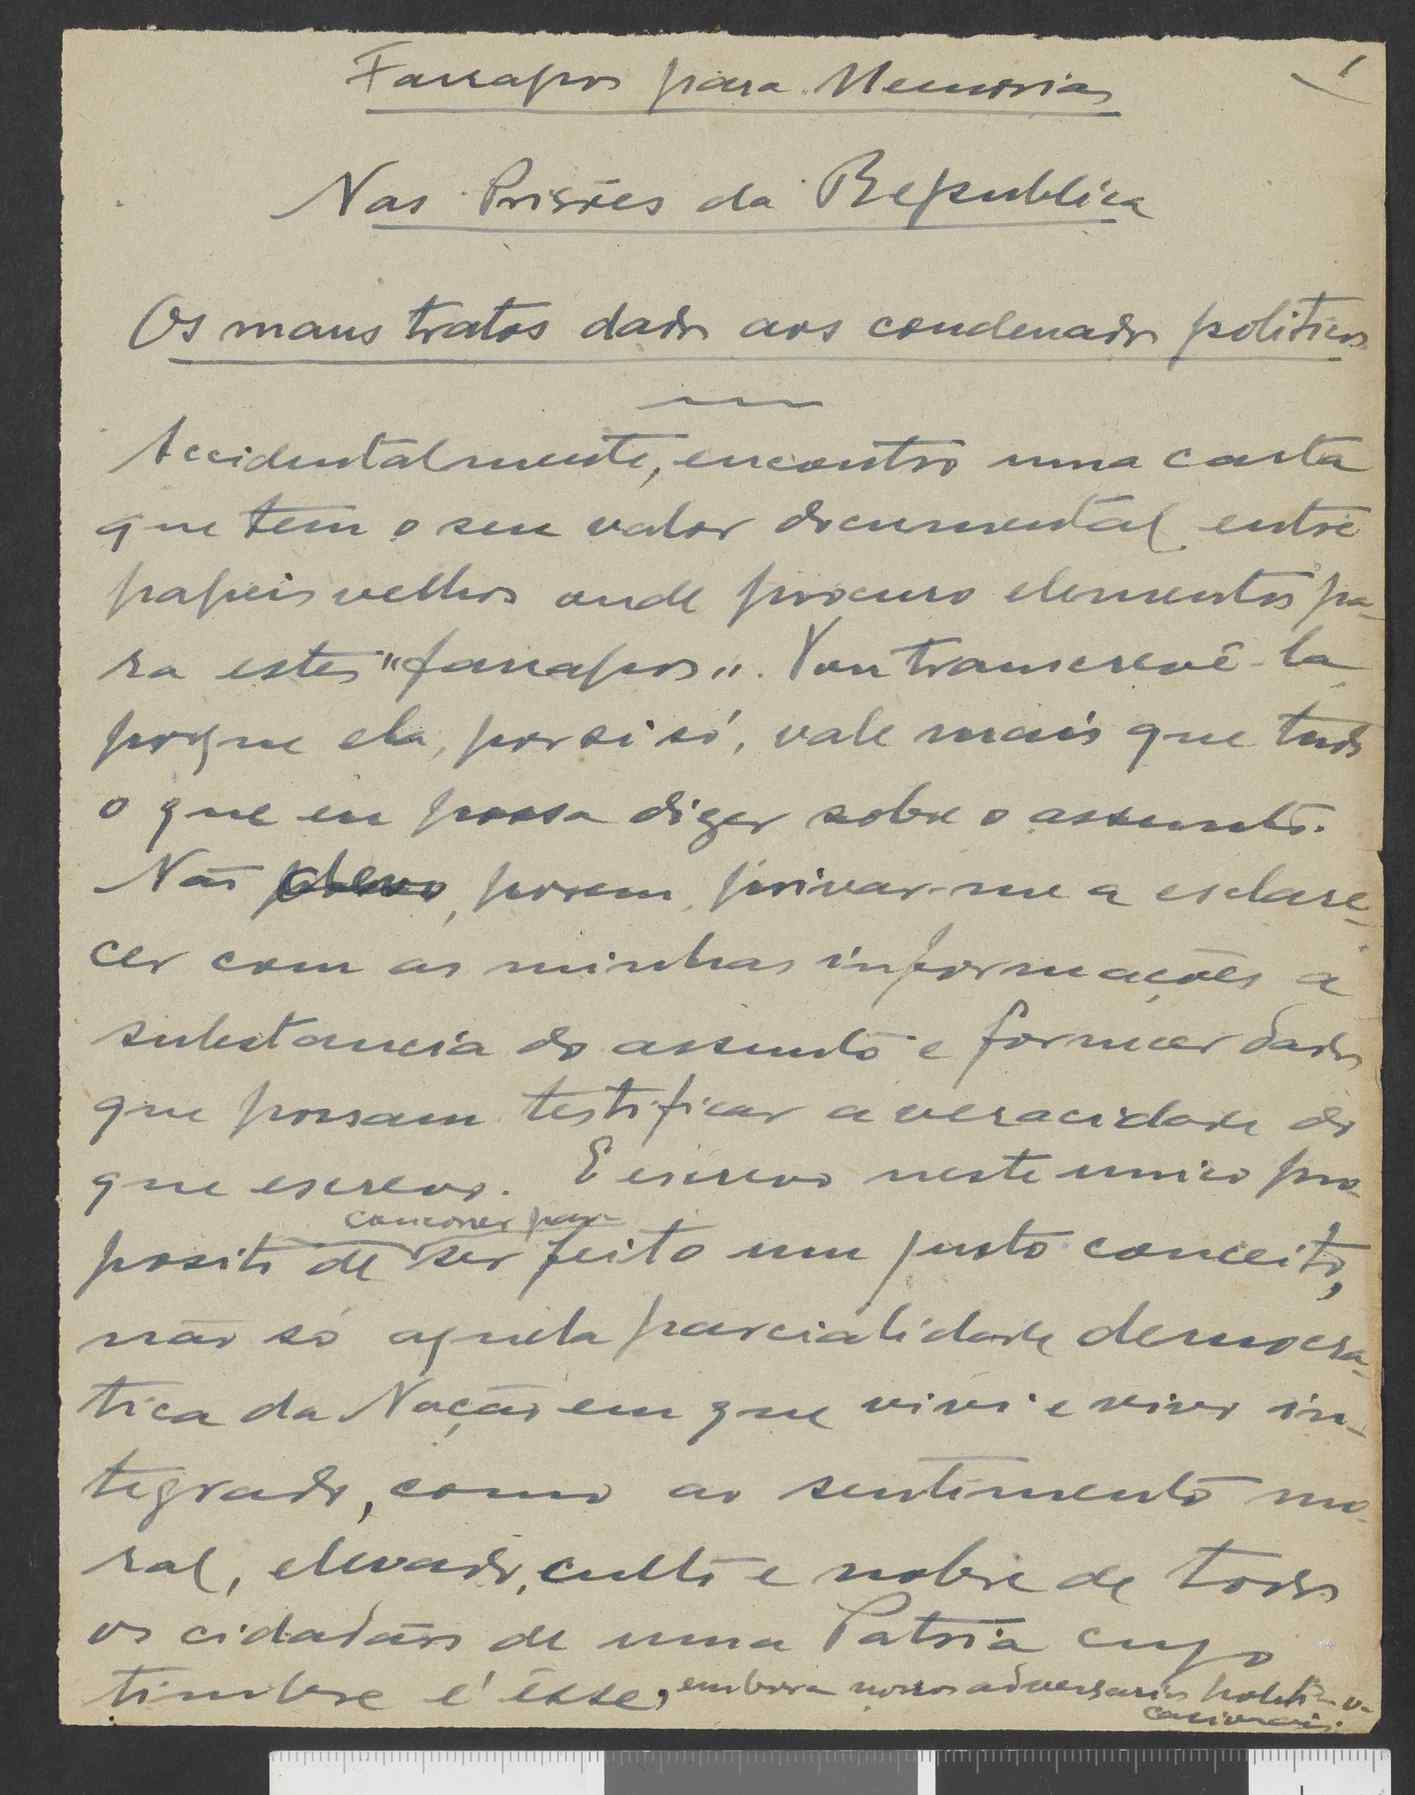 1
Farrapos para Memorias
Nas Prisões da Republica
Os maus tratos dados aos condenados politicos
Accidentalmente, encontro uma carta
que tem o seu valor documental entre
papeis velhos onde procuro elementos pa-
ra estes "farrapos". Vou transcrevê-la
porque ela, por si só, vale mais que tudo
o que eu possa dizer sobre o assunto.
Não devo, porem, privar-me a esclare-
cer com as minhas informações a
substancia do assunto e fornecer dados
que possam testificar a veracidade do
que escrevo. E escrevo neste unico pro-
concorrer para
posito de ser feito um justo conceito,
não só aquela parcialidade democra-
tica da Nação em que vivi e vivo in-
tegrado, como ao sentimento mo-
ral, elevado, culto e nobre de todos
os cidadãos de uma Patria cujo
timbre é êsse, embora nossos adversarios politicos o-
casionais.